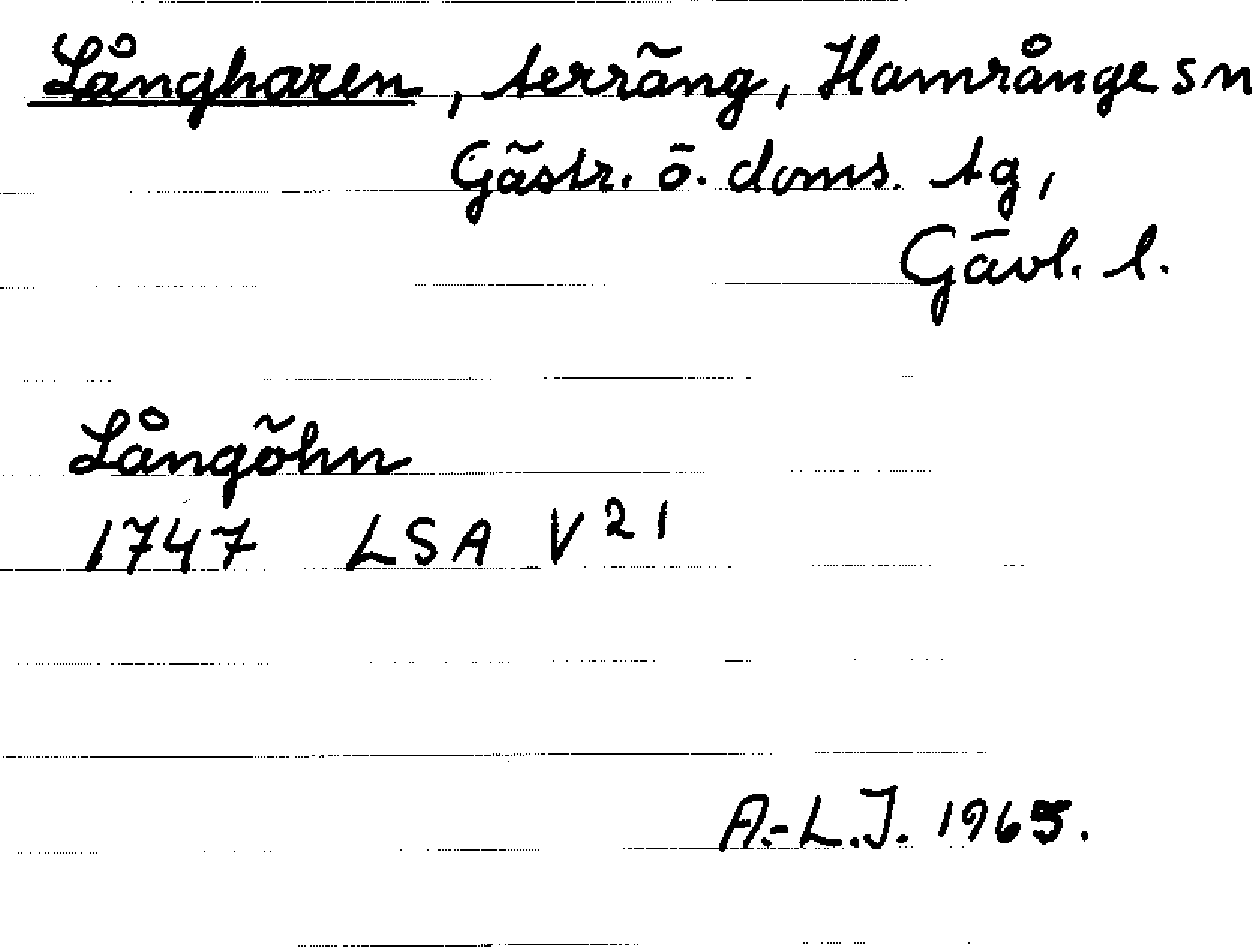 Långharen, terräng, Hamrånge sn
Gästr. ö. doms. tg,
Gävl. l.
Långöhn
1747 LSA V 21
A.-L.J. 1965.